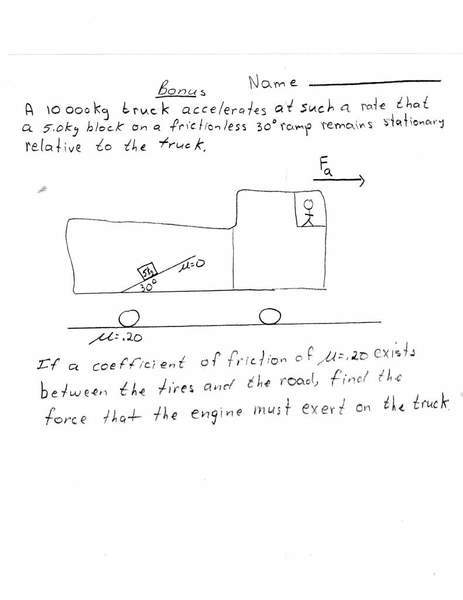 Bonus
Name
A 10 000kg truck accelerates at such a rate that
a 5.0kg block on a frictionless 30° ramp remains stationary
relative to the truck.
Fa
5kg
μ=0
30°
μ=.20
If a coefficient of friction of μ=.20 exists
between the tires and the road, find the
force that the engine must exert on the truck.